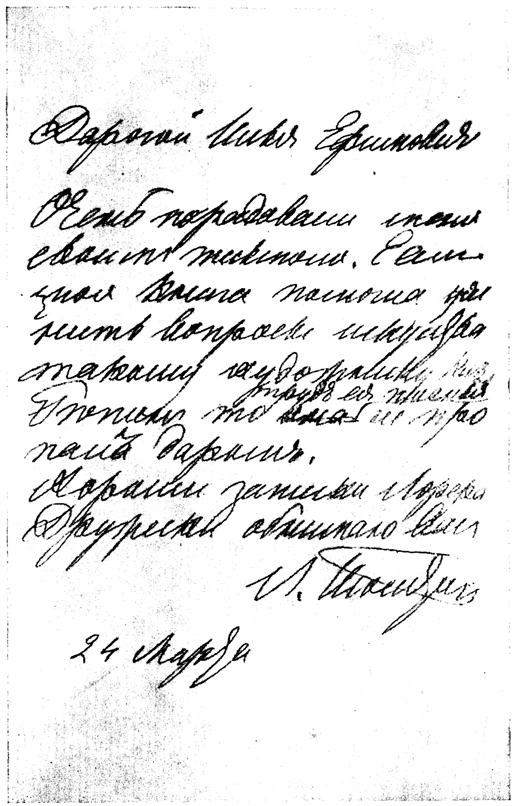 Дорогой Илья Ефимовичъ
Очень порадовали меня
своимъ письмомъ. Если
моя книга помогла уяс
нить вопросы искуства
такому художнику какъ
трудъ ея писанія
Рѣпинъ то не про
палъ даромъ.
Хороши записки Лорера
Дружески обнимаю васъ
Л. Толстой
24 Марта